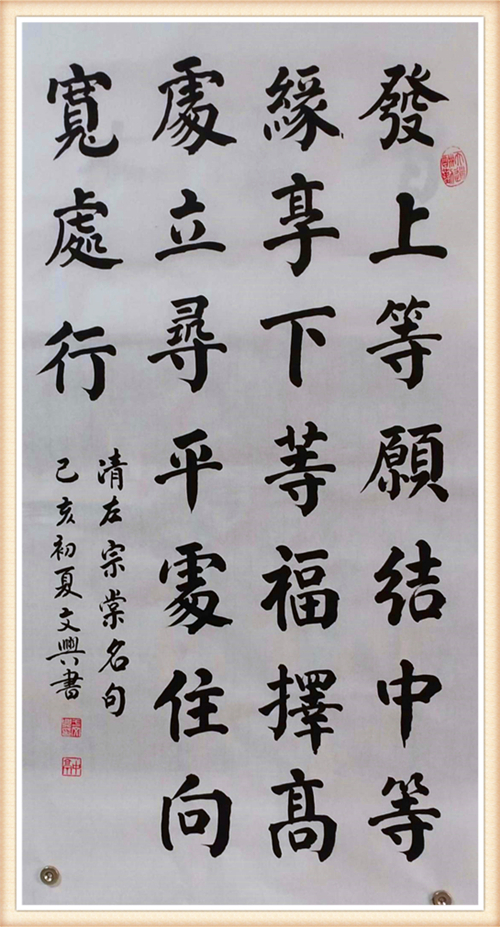 發上等願結中等
緣享下等福擇高
處立尋平處住向
寬處行
清左宗棠名句
己亥初夏文興書